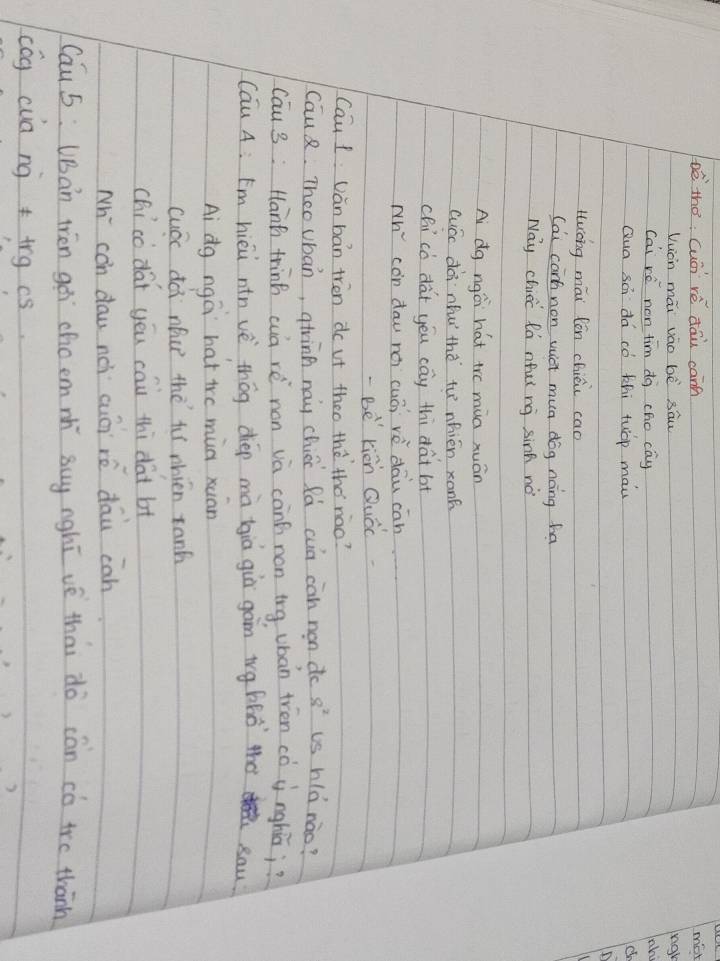 Đề thơ: Cuối rễ đầu cành
Vươn mãi vào bề sâu
Cái rễ non tìm đg cho cây
Qua sỏi đá có khi tướp máu
Hướng mãi lên chiều cao
Cái cành non vượt mưa dông nắng hạ
Nảy chiếc lá như ng sinh nở
Ai đg ngồi hát trc mùa xuân
Cuộc đời như thể tự nhiên xanh
Chỉ có đất yêu cây thì đất bt
Nh~ cơn đau nơi cuối rễ đầu càh ....
- Bế Kiến Quốc -
Câu 1: Văn bản trên đc vt theo thể thơ nào?
Câu 2: Theo vbản, qtrình nảy chiếc lá của càh non đc s² vs h/á nào?
Câu 3: Hành trình của rễ non và cành non trg vbản trên có ý nghĩa j?
Câu 4: Em hiểu ntn về thôg điệp mà tgiả gửi gắm trg khổ thơ sau
Ai đg ngồi hát trc mùa xuân
Cuộc đời như thể tự nhiên xanh
Chỉ có đất yêu cây thì đất bt
Nh~ cơn đau nơi cuối rễ đầu càh
Câu 5: VBản trên gợi cho em nh~ suy nghĩ về thái độ cần có trc thành
côg của ng ≠ trg cs.
một
ngh
nhi